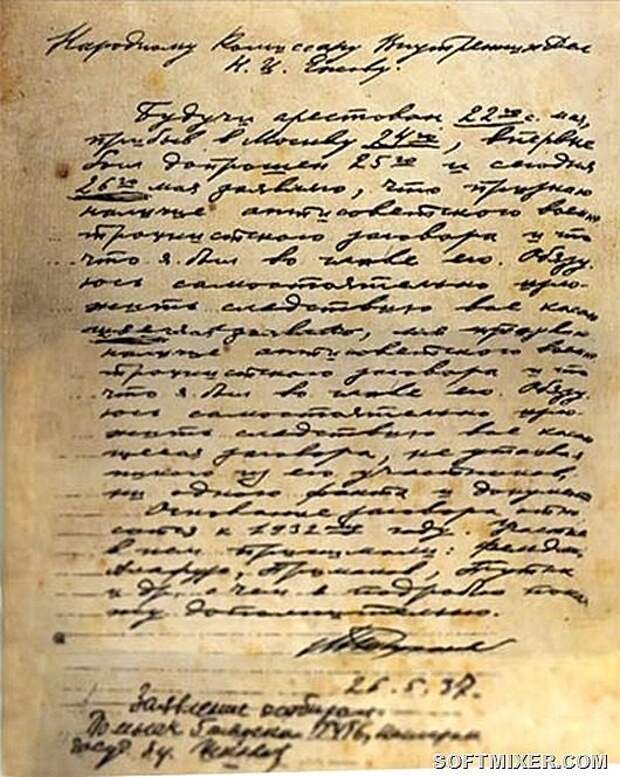 Народному Комиссару Внутренних Дел
Н. И. Ежову.
Будучи арестован 22го с. мая,
прибыв в Москву 24го, впервые
был допрошен 25го и сегодня
26го мая заявляю, что признаю
наличие антисоветского военно
троцкистского заговора и то
что я был во главе его. Обязу
юсь самостоятельно изло
жить следствию все касаю
наличие антисоветского военно
троцкистского заговора и то
что я был во главе его. Обязу
юсь самостоятельно изло
жить следствию все касаю
щееся заговора, не утаивая
никого из его участников,
ни одного факта и документа
Основание заговора отно
сится к 1932му году. Участие
в нем принимали: Фельдман,
Алафузо, Примаков, Путна
и др., о чем я подробно пока
жу дополнительно.
26.5.37.
Заявление отобрал:
SOFTMIXER.COM